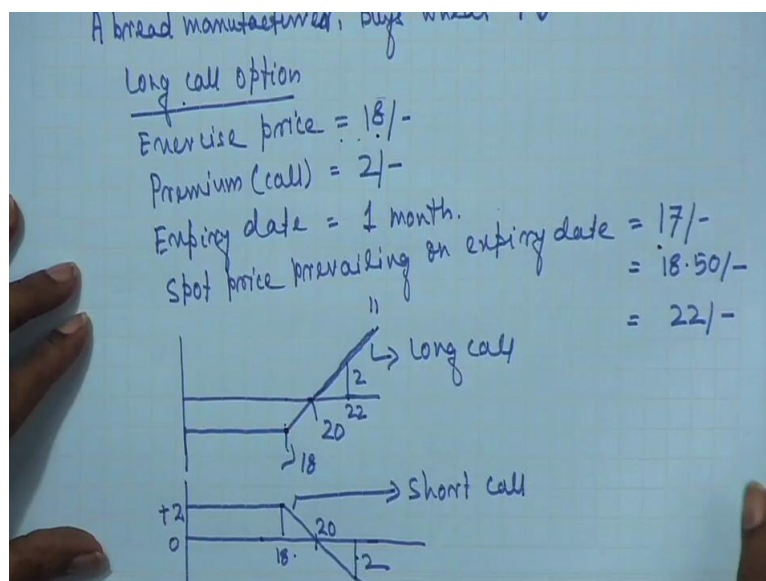 A bread manufacturer, buys wheat
Long call option
Exercise price = 18/-
Premium (call) = 2/-
Expiry date = 1 month.
Spot price prevailing on expiry date = 17/-
= 18.50/-
= 22/-
Long call
2
22
20
18
Short call
+2
0
18.
20
2